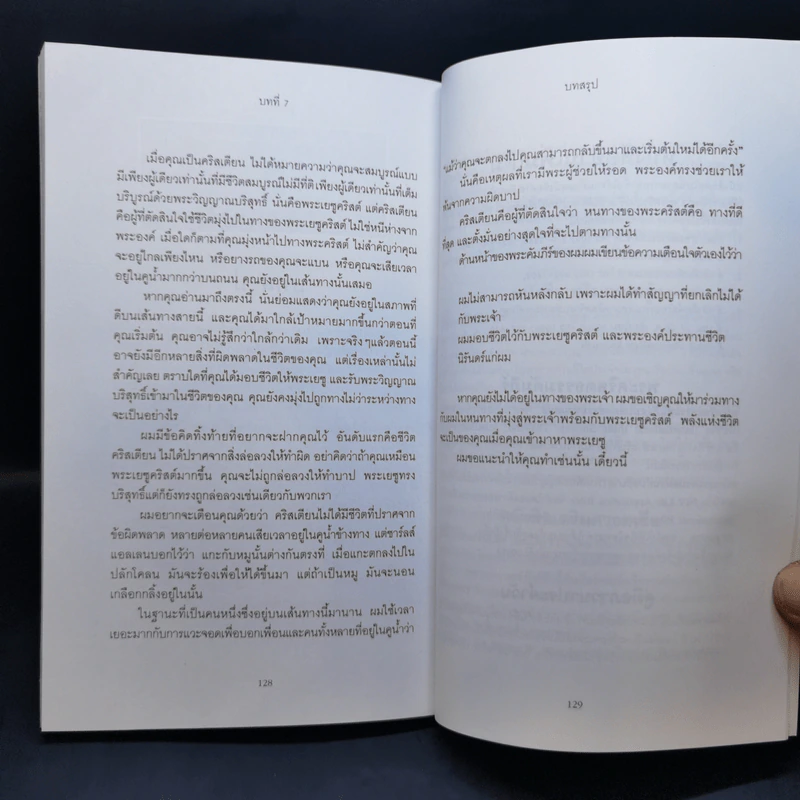 บทที่ 7
เมื่อคุณเป็นคริสเตียน ไม่ได้หมายความว่าคุณจะสมบูรณ์แบบ
มีเพียงผู้เดียวเท่านั้นที่มีชีวิตสมบูรณ์ไม่มีที่ติ เพียงผู้เดียวเท่านั้นที่เต็ม
บริบูรณ์ด้วยพระวิญญาณบริสุทธิ์ นั่นคือพระเยซูคริสต์ แต่คริสเตียน
คือผู้ที่ตัดสินใจใช้ชีวิตมุ่งไปในทางของพระเยซูคริสต์ ไม่ใช่หนีห่างจาก
พระองค์ เมื่อใดก็ตามที่คุณมุ่งหน้าไปทางพระคริสต์ ไม่สำคัญว่าคุณ
จะอยู่ไกลเพียงไหน หรือยางรถของคุณจะแบน หรือคุณจะเสียเวลา
อยู่ในคูน้ำมากกว่าบนถนน คุณยังอยู่ในเส้นทางนั้นเสมอ
หากคุณอ่านมาถึงตรงนี้ นั่นย่อมแสดงว่าคุณยังอยู่ในสภาพที่
ดีบนเส้นทางสายนี้ และคุณได้มาใกล้เป้าหมายมากขึ้นกว่าตอนที่
คุณเริ่มต้น คุณอาจไม่รู้สึกว่าใกล้กว่าเดิม เพราะจริงๆแล้วตอนนี้
อาจยังมีอีกหลายสิ่งที่ผิดพลาดในชีวิตของคุณ แต่เรื่องเหล่านั้นไม่
สำคัญเลย ตราบใดที่คุณได้มอบชีวิตให้พระเยซู และรับพระวิญญาณ
บริสุทธิ์เข้ามาในชีวิตของคุณ คุณยังคงมุ่งไปถูกทางไม่ว่าระหว่างทาง
จะเป็นอย่างไร
ผมมีข้อคิดทิ้งท้ายที่อยากจะฝากคุณไว้ อันดับแรกคือชีวิต
คริสเตียน ไม่ได้ปราศจากสิ่งล่อลวงให้ทำผิด อย่าคิดว่าถ้าคุณเหมือน
พระเยซูคริสต์มากขึ้น คุณจะไม่ถูกล่อลวงให้ทำบาป พระเยซูทรง
บริสุทธิ์แต่ก็ยังทรงถูกล่อลวงเช่นเดียวกับพวกเรา
ผมอยากจะเตือนคุณด้วยว่า คริสเตียนไม่ได้มีชีวิตที่ปราศจาก
ข้อผิดพลาด หลายต่อหลายคนเสียเวลาอยู่ในคูน้ำข้างทาง แต่ชาร์ลส์
แอลเลนบอกไว้ว่า แกะกับหมูนั้นต่างกันตรงที่ เมื่อแกะตกลงไปใน
ปลักโคลน มันจะร้องเพื่อให้ได้ขึ้นมา แต่ถ้าเป็นหมู มันจะนอน
เกลือกกลิ้งอยู่ในนั้น
ในฐานะที่เป็นคนหนึ่งซึ่งอยู่บนเส้นทางนี้มานาน ผมใช้เวลา
เยอะมากกับการแวะจอดเพื่อบอกเพื่อนและคนทั้งหลายที่อยู่ในคูน้ำว่า
128
บทสรุป
"แม้ว่าคุณจะตกลงไปคุณสามารถกลับขึ้นมาและเริ่มต้นใหม่ได้อีกครั้ง"
นั่นคือเหตุผลที่เรามีพระผู้ช่วยให้รอด พระองค์ทรงช่วยเราให้
พ้นจากความผิดบาป
คริสเตียนคือผู้ที่ตัดสินใจว่า หนทางของพระคริสต์คือ ทางที่ดี
ที่สุด และตั้งมั่นอย่างสุดใจที่จะไปตามทางนั้น
ด้านหน้าของพระคัมภีร์ของผมผมเขียนข้อความเตือนใจตัวเองไว้ว่า
ผมไม่สามารถหันหลังกลับ เพราะผมได้ทำสัญญาที่ยกเลิกไม่ได้
กับพระเจ้า
ผมมอบชีวิตไว้กับพระเยซูคริสต์ และพระองค์ประทานชีวิต
นิรันดร์แก่ผม
หากคุณยังไม่ได้อยู่ในทางของพระเจ้า ผมขอเชิญคุณให้มาร่วมทาง
กับผมในหนทางที่มุ่งสู่พระเจ้าพร้อมกับพระเยซูคริสต์ พลังแห่งชีวิต
จะเป็นของคุณเมื่อคุณเข้ามาหาพระเยซู
ผมขอแนะนำให้คุณทำเช่นนั้น เดี๋ยวนี้
129